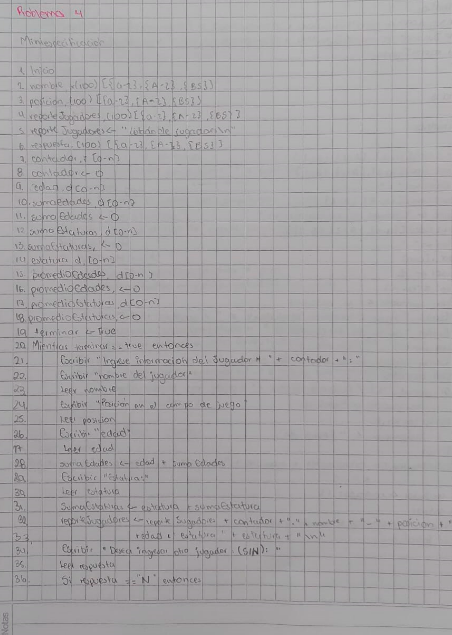 Problema 4
Miniespecificación
1. Inicio
2. nombre, c(100) [{a-z},{A-Z},{BS}]
3. posicion, (100) [{a-z},{A-Z},{BS}]
4. reporteJugadores, (100) [{a-z},{A-Z},{BS}]
5. reporteJugadores ← "de jugador\n"
6. respuesta, (100) [{a-z},{A-Z},{BS}]
7. contador, [0-n]
8. contador ← 0
9. edad, d[0-n]
10. sumaEdades, d[0-n]
11. sumaEdades ← 0
12. sumaEstaturas, d[0-n]
13. sumaEstaturas, ← 0
14. estatura d, [0-n]
15. promedioEdades, d[0-n]
16. promedioEdades, ← 0
17. promedioEstaturas, d[0-n]
18. promedioEstaturas, ← 0
19. terminar ← true
20. Mientras terminar == true entonces
21. Escribir "Ingrese informacion del Jugador # " + contador + ":"
22. Escribir "nombre del jugador"
23. Leer nombre
24. Escribir "Posicion en el campo de juego"
25. Leer posicion
26. Escribir "edad"
27. Leer edad
28. sumaEdades ← edad + sumaEdades
29. Escribir "Estatura"
30. Leer estatura
31. SumaEstaturas ← estatura + sumaEstatura
32. reporteJugadores ← reporte Jugadores + contador + "." + nombre + "-" + posicion + "
33. + edad + estatura " + estatura + "\n"
34. Escribir "Desea ingresar otro jugador (S/N): "
35. Leer respuesta
36. Si respuesta == "N" entonces
Notas